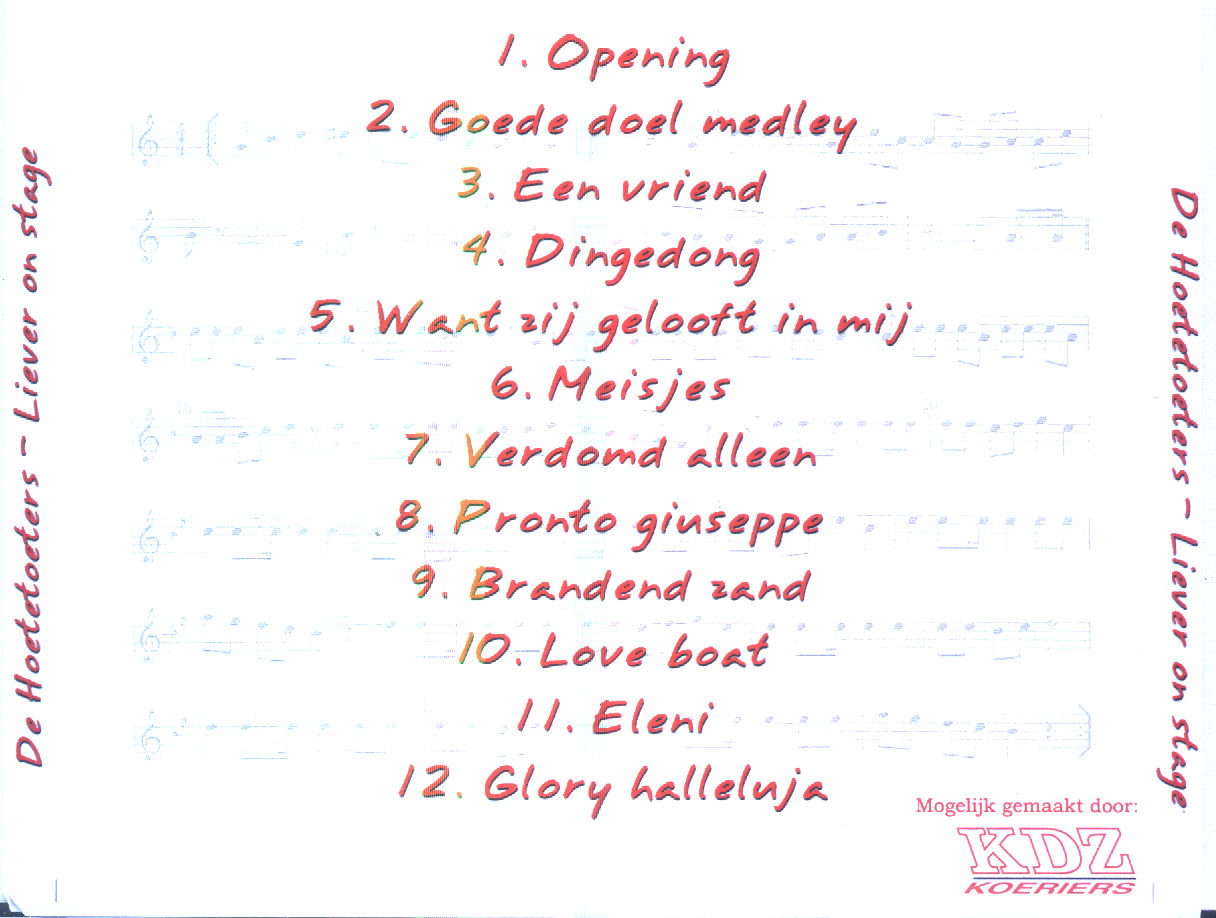 1. Opening
2. Goede doel medley
3. Een vriend
4. Dingedong
5. Want zij gelooft in mij
6. Meisjes
7. Verdomd alleen
8. Pronto giuseppe
9. Brandend zand
10. Love boat
11. Eleni
12. Glory halleluja
De Hoetetoeters - Liever on stage
De Hoetetoeters - Liever on stage
Mogelijk gemaakt door:
KDZ
KOERIERS